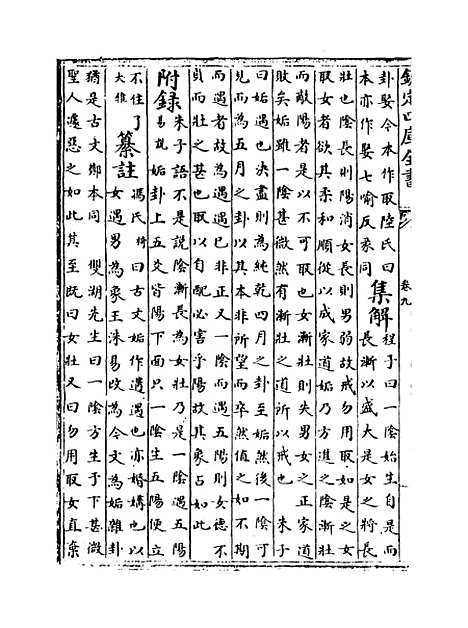 欽定四庫全書
卷九
卦娶今本作取陸氏曰
本亦作娶七喻反象同
集解
程子曰一陰始生自是而
長漸以盛大是女之將長
壯也陰長則陽消女長則男弱故戒勿用取如是之女
取女者欲其柔和順從以成家道姤乃方進之陰漸壯
而敵陽者是以不可取也女漸壯則失男女之正家道
敗矣姤雖一陰甚微然有漸壯之道所以戒也 朱子
曰姤遇也決盡則為純乾四月之卦至姤然後一陰可
見而為五月之卦以其本非所望而卒然值之如不期
而遇者故為遇遇已非正又一陰而遇五陽則女德不
貞而壯之甚也取以自配必害乎陽故其象占如此
附録
朱子語不是說陰漸長為女壯乃是一陰遇五陽
易說姤卦上五爻皆陽下面只一陰生五陽便立
不住了
大雅
纂註
馮氏椅曰古文姤作遘遇也亦婚媾也以
女遇男為象王洙易改為今文為姤雜卦
猶是古文鄭本同 雙湖先生曰一陰方生于下甚微
聖人遽惡之如此其至既曰女壯又曰勿用取女直棄